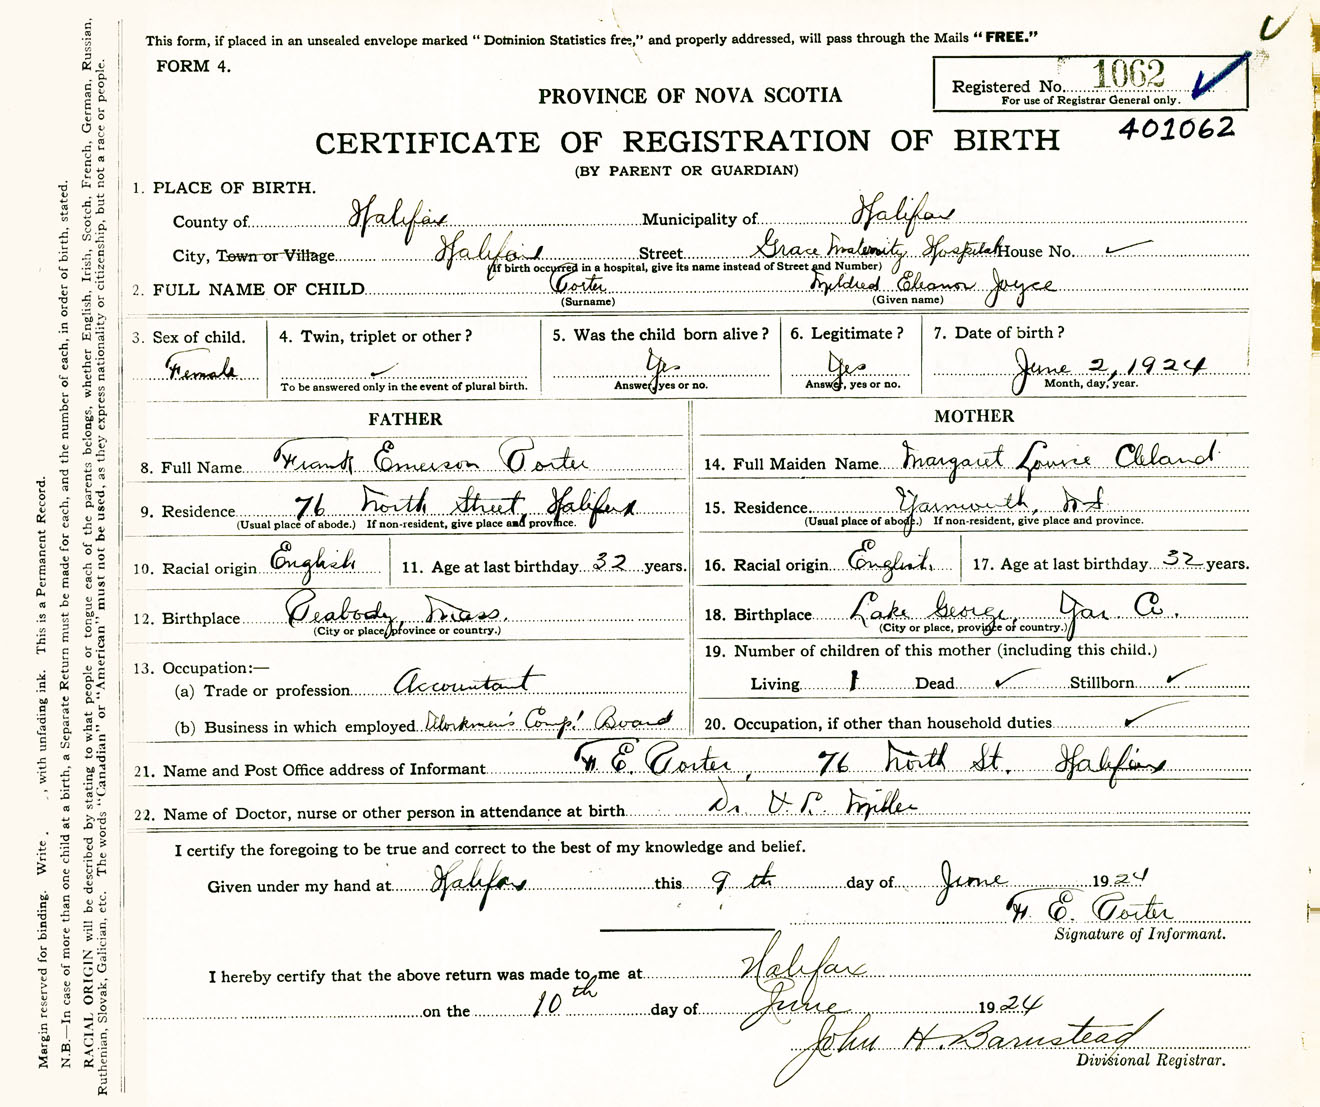 This form, if placed in an unsealed envelope marked "Dominion Statistics free," and properly addressed, will pass through the Mails "FREE."
FORM 4.
Registered No. 1062
For use of Registrar General only.
PROVINCE OF NOVA SCOTIA
401062
CERTIFICATE OF REGISTRATION OF BIRTH
(BY PARENT OR GUARDIAN)
1. PLACE OF BIRTH.
County of Halifax Municipality of Halifax
City, Town or Village Halifax Street Grace Maternity Hospital House No.
(If birth occurred in a hospital, give its name instead of Street and Number)
2. FULL NAME OF CHILD Porter Mildred Eleanor Joyce
(Surname) (Given name)
3. Sex of child. 4. Twin, triplet or other? 5. Was the child born alive? 6. Legitimate? 7. Date of birth?
Female Yes Yes June 2, 1924
To be answered only in the event of plural birth. Answer, yes or no. Answer, yes or no. Month, day, year.
FATHER MOTHER
8. Full Name Frank Emerson Porter 14. Full Maiden Name Margaret Louise Cleland
9. Residence 76 North Street, Halifax 15. Residence. Yarmouth, NS
(Usual place of abode.) If non-resident, give place and province. (Usual place of abode.) If non-resident, give place and province.
10. Racial origin English 11. Age at last birthday 32 years. 16. Racial origin English 17. Age at last birthday 32 years.
12. Birthplace Peabody, Mass. 18. Birthplace Lake George, Yar Co.
(City or place, province or country.) (City or place, province or country.)
13. Occupation:— 19. Number of children of this mother (including this child.)
(a) Trade or profession Accountant Living 1 Dead Stillborn
(b) Business in which employed Workmen's Comp! Board 20. Occupation, if other than household duties
21. Name and Post Office address of Informant F. E. Porter, 76 North St. Halifax
22. Name of Doctor, nurse or other person in attendance at birth Dr. Miller
I certify the foregoing to be true and correct to the best of my knowledge and belief.
Given under my hand at Halifax this 9th day of June 1924
F. E. Porter
Signature of Informant.
I hereby certify that the above return was made to me at Halifax
on the 10th day of June 1924
John H. Barnstead
Divisional Registrar.
Margin reserved for binding. Write , with unfading ink. This is a Permanent Record.
N.B.—In case of more than one child at a birth, a Separate Return must be made for each, and the number of each, in order of birth, stated.
RACIAL ORIGIN will be described by stating to what people or tongue each of the parents belongs, whether English, Irish, Scotch, French, German, Russian,
Ruthenian, Slovak, Galician, etc. The words "Canadian" or "American" must not be used, as they express nationality or citizenship, but not a race or people.